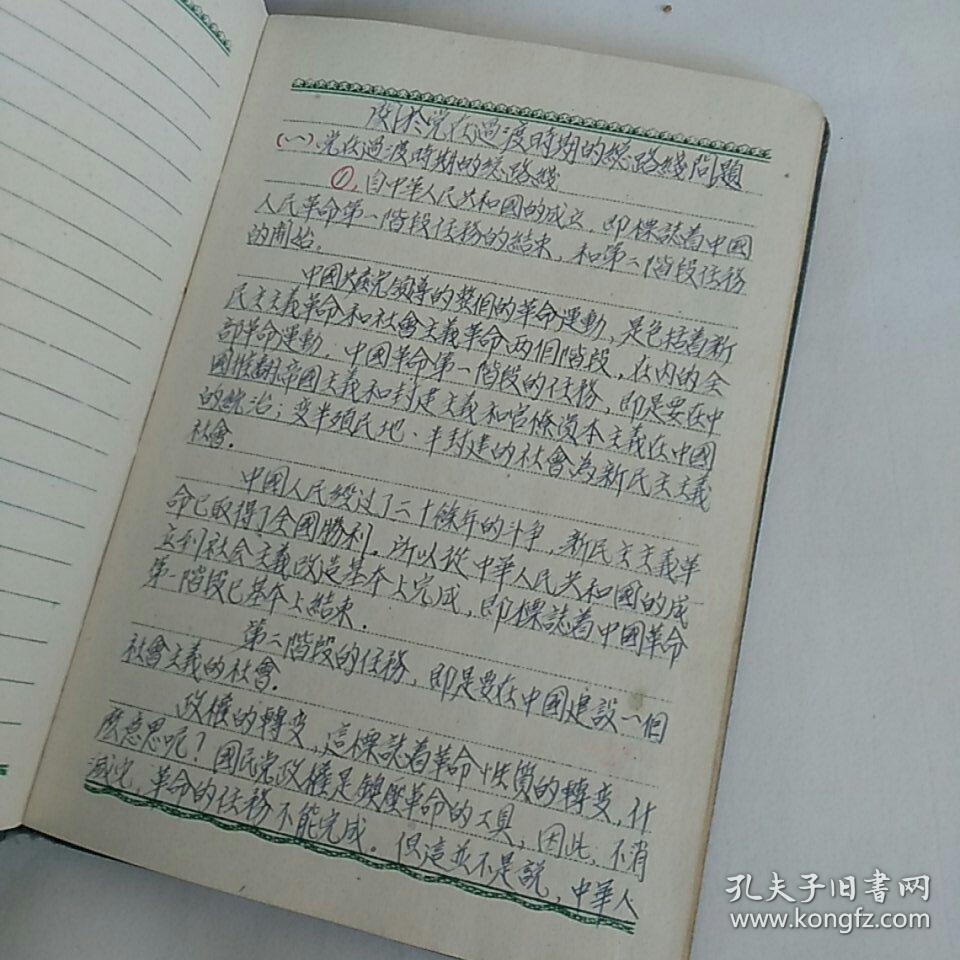 関於党在過渡時期的総路綫問題
(一)、党在過渡時期的総路綫
①,自中華人民共和國的成立,即標誌着中國
人民革命第一階段任務的結束,和第二階段任務
的開始。
中國共產党領導的整個的革命運動,是包括着新
民主主義革命和社會主義革命两個階段,在内的全
部革命運動,中國革命第一階段的任務,即是要在中
國推翻帝國主義和封建主義和官僚資本主義在中國
的統治;变半殖民地、半封建的社會為新民主主義
社會.
中國人民經过了二十餘年的斗争,新民主主義革
命已取得了全國勝利。所以從中華人民共和國的成
立到社会主義改造基本上完成,即標誌着中國革命
第一階段已基本上結束.
第二階段的任務,即是要在中國建設一個
社會主義的社會.
政權的轉变,這標誌着革命性質的轉变,什
麽意思呢?國民党政權是鎮壓革命的工具,因此,不消
滅它,革命的任務不能完成。但這並不是說,中華人
孔夫子旧書网
www.kongfz.com